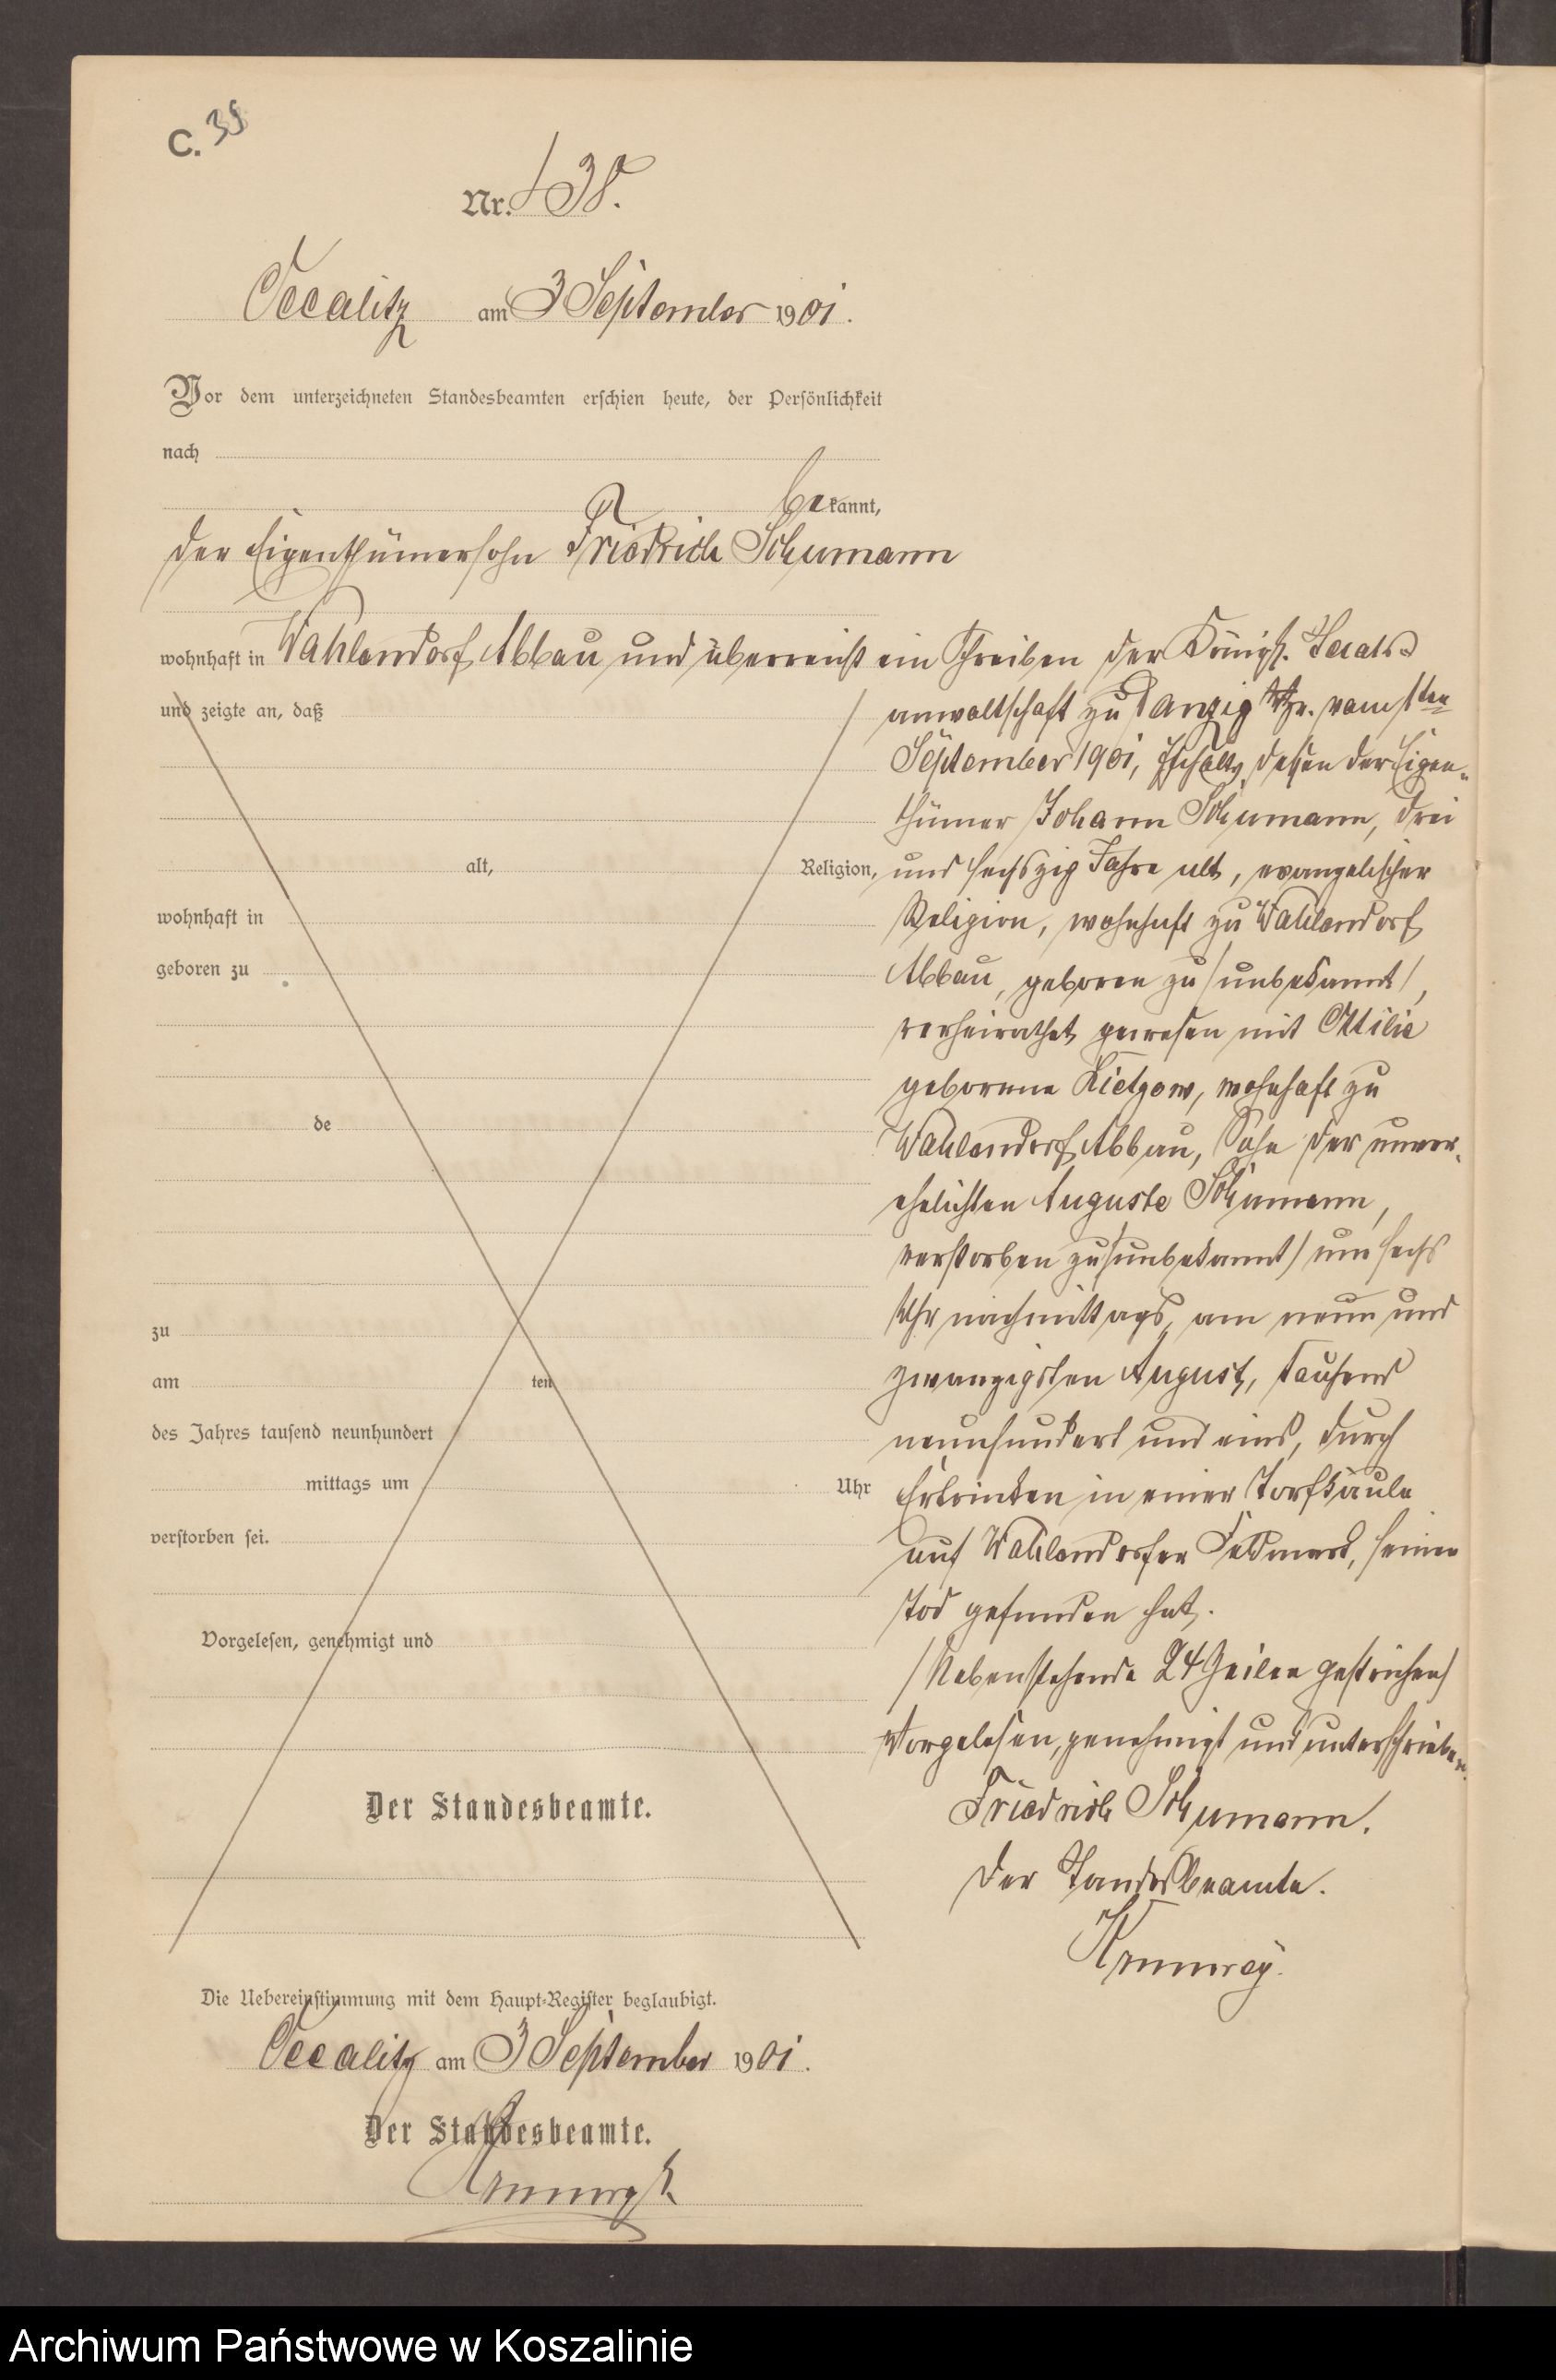 C. 38
Nr. 38.
Occalitz am 3 September 1901.
Vor dem unterzeichneten Standesbeamten erschien heute, der Persönlichkeit
nach
bekannt,
der Eigenthümersohn Friedrich Schumann
wohnhaft in Wahlendorf Abbau und überreicht ein Schreiben der Königl. Staats
und zeigte an, daß
alt, Religion,
wohnhaft in
geboren zu
de
zu
am ten
des Jahres tausend neunhundert
mittags um Uhr
verstorben sei.
Vorgelesen, genehmigt und
Der Standesbeamte.
anwaltschaft zu Danzig vom 1ten
September 1901, Inhalts dessen der Eigen-
thümer Johann Schumann, drei
und sechszig Jahre alt, evangelischer
Religion, wohnhaft zu Wahlendorf
Abbau, geboren zu /unbekannt/,
verheirathet gewesen mit Ottilie
geborene Lietzow, wohnhaft zu
Wahlendorf Abbau, Sohn der unver-
ehelichten Auguste Schumann,
verstorben zu /unbekannt/ um sechs
Uhr nachmittags, am neun und
zwanzigsten August, tausend
neunhundert und eins, durch
Ertrinken in einer Torfkaule
auf Wahlendorfer Feldmark, seinen
Tod gefunden hat.
/Nebenstehende 24 Zeilen gestrichen/
Vorgelesen, genehmigt und unterschrieben.
Friedrich Schumann.
Der Standesbeamte.
Die Uebereinstimmung mit dem Haupt-Register beglaubigt.
Occalitz am 3 September 1901.
Der Standesbeamte.
Archiwum Państwowe w Koszalinie